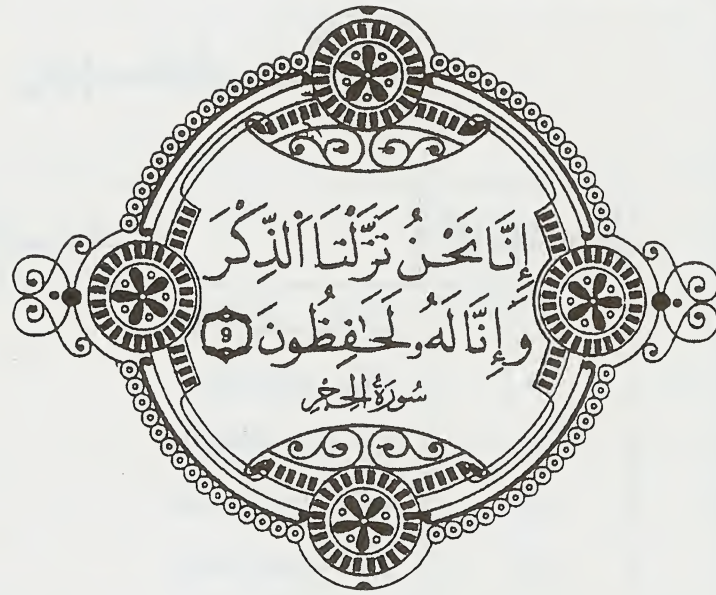 إِنَّا نَحْنُ نَزَّلْنَا الذِّكْرَ
وَإِنَّا لَهُ لَحَافِظُونَ 9
سُورَةُ الحِجْرِ